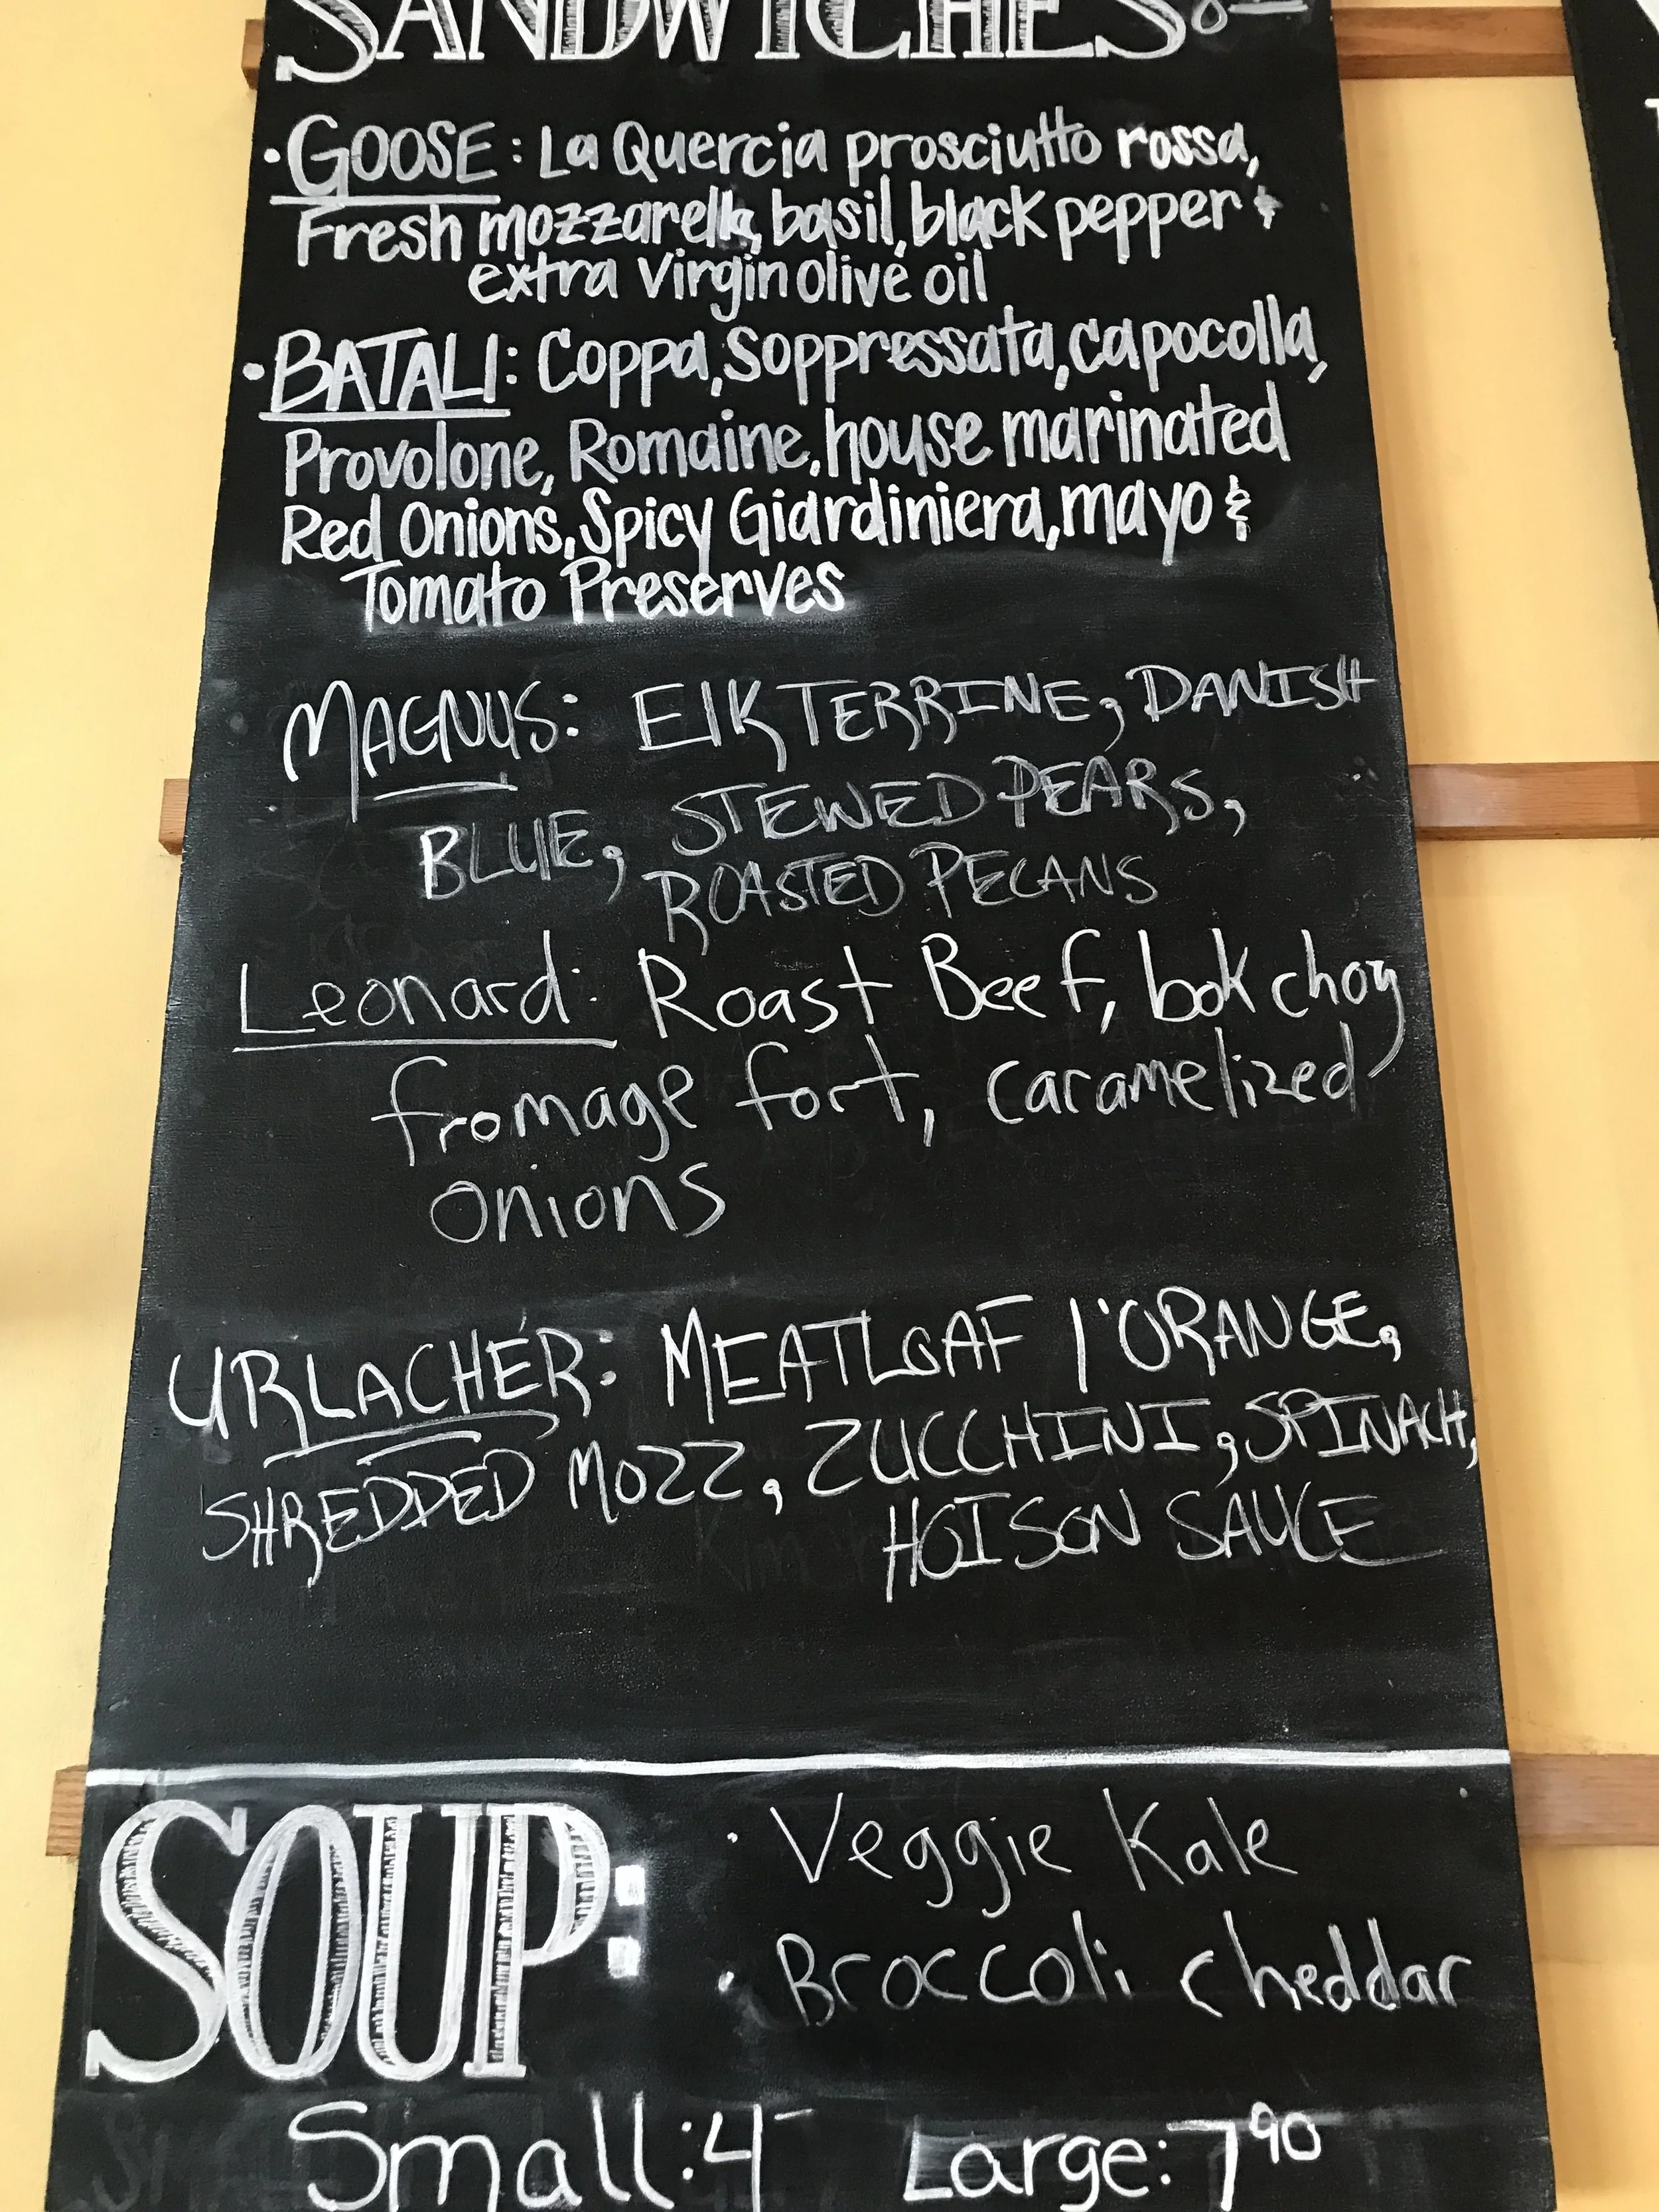 SANDWICHES
• GOOSE: La Quercia prosciutto rossa,
Fresh mozzarella, basil, black pepper &
extra virgin olive oil
• BATALI: Coppa, Soppressata, capocolla,
Provolone, Romaine, house marinated
Red Onions, Spicy Giardiniera, mayo &
Tomato Preserves
MAGNUS: ElK TERRINE, DANISH
BLUE, STEWED PEARS,
ROASTED PECANS
Leonard: Roast Beef, bok choy
fromage fort, caramelized
onions
URLACHER: MEATLOAF l'ORANGE,
SHREDDED MOZZ, ZUCCHINI, SPINACH,
HOISON SAUCE
SOUP:
• Veggie Kale
• Broccoli cheddar
Small: 4- Large: 7 90